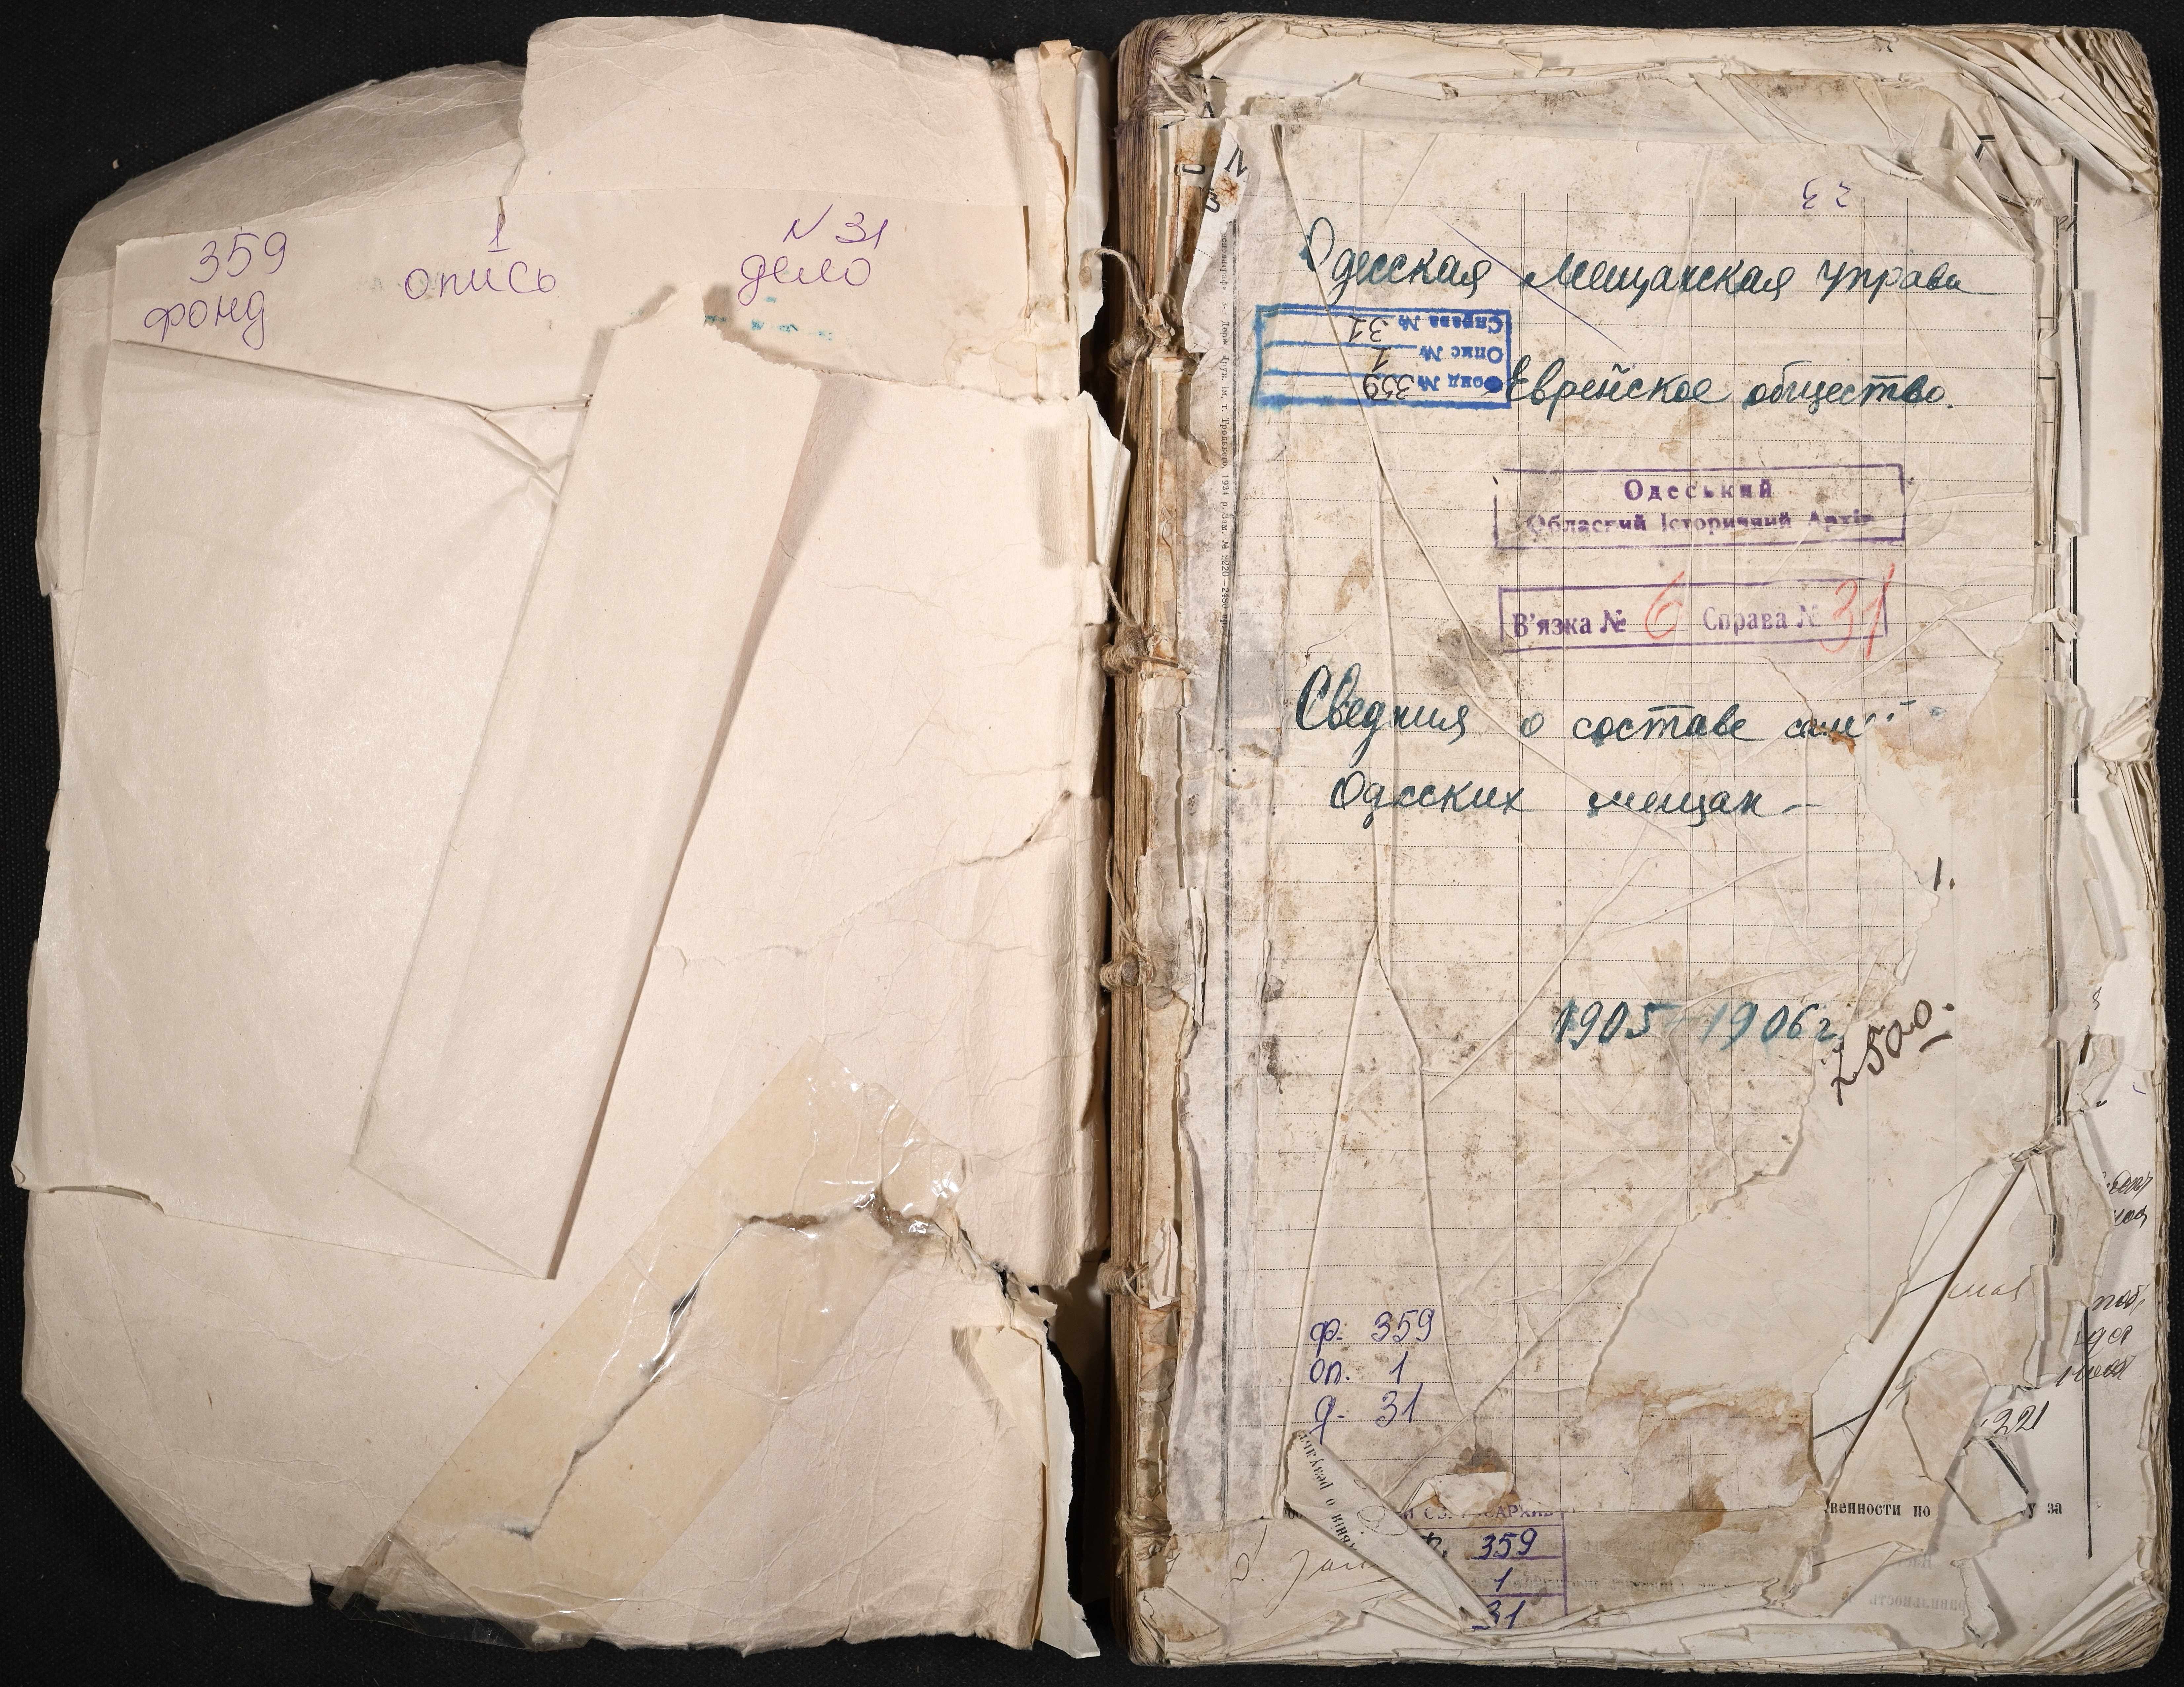 359
фонд
1
опись
N 31
дело
Одесская Мещанская управа
Справа № 31
Опис № 1
Фонд № 359
Еврейское общество.
Одеський
Обласний Історичний Архів
В'язка № 6 Справа № 31
Сведния о составе
Одесских мещан
1.
1905 1906 г.
500.
ф. 359
оп. 1
д. 31
221
венности по
у за
359
1
31